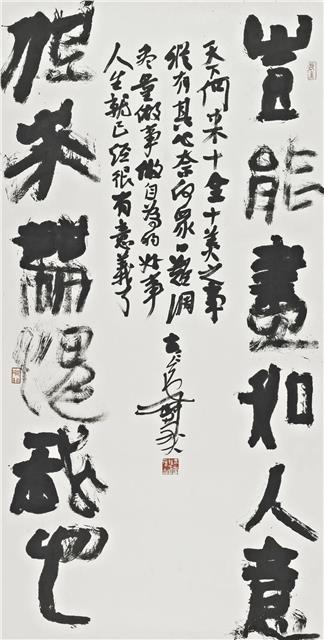 豈能盡如人意
天下何來十全十美之事
縱有其心奈何眾口難調
尽量做事做自為的好事
人生就已經很有意義了
但求無愧我心